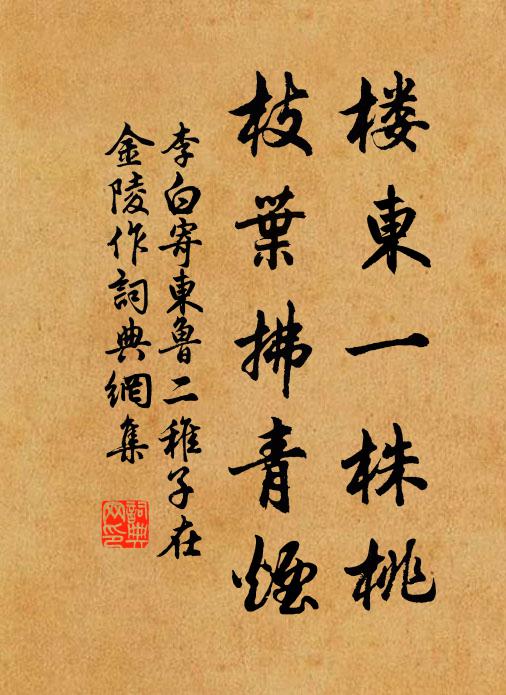 楼東一株桃
枝葉拂青煙
李白寄東魯二稚子在
金陵作詞典網集
詞典网印